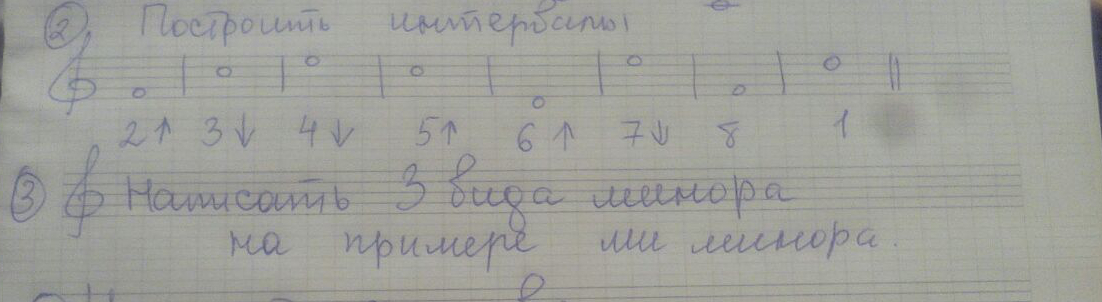 2. Построить интервалы
2↑ 3↓ 4↓ 5↑ 6↑ 7↓ 8 1
3 Написать 3 вида минора
на примере ми минора.